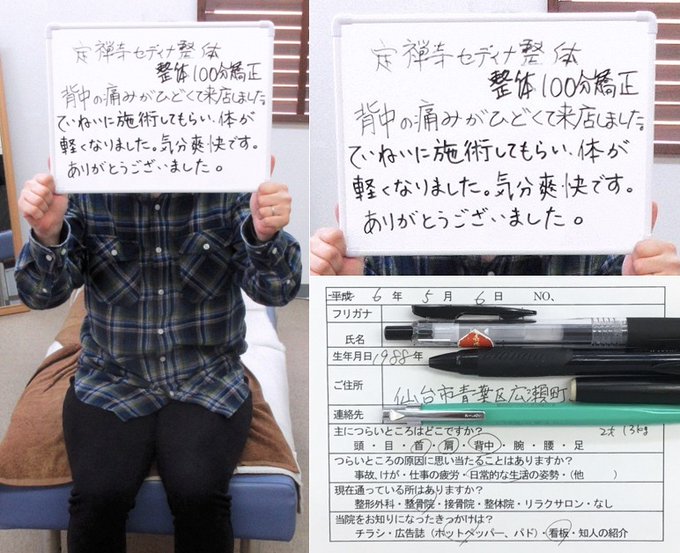 定禅寺セディナ整体
整体100分矯正
背中の痛みがひどくて来店しました。
ていねいに施術してもらい、体が
軽くなりました。気分爽快です。
ありがとうございました。
定禅寺セディナ整体
整体100分矯正
背中の痛みがひどくて来店しました。
ていねいに施術してもらい、体が
軽くなりました。気分爽快です。
ありがとうございました。
平成 6 年 5 月 6 日 NO、
フリガナ
氏名
生年月日 1988年
ご住所 仙台市青葉区広瀬町
連絡先
主につらいところはどこですか?
頭・目・首・肩・背中・腕・腰・足
つらいところの原因に思い当たることはありますか?
事故、けが・仕事の疲労・日常的な生活の姿勢・(他 )
現在通っている所はありますか?
整形外科・整骨院・接骨院・整体院・リラクサロン・なし
当院をお知りになったきっかけは?
チラシ・広告誌(ホットペッパー、パド)・看板・知人の紹介